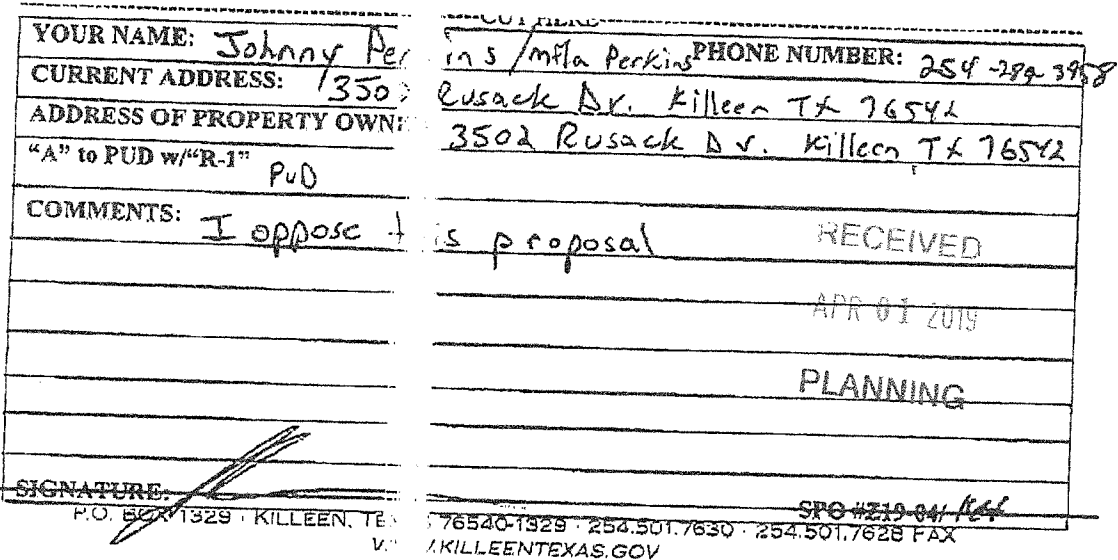 CUT HERE
YOUR NAME: Johnny Per ins / Perkins PHONE NUMBER: 254-289-3958
CURRENT ADDRESS: 350 Rusack Dr. Killeen Tx 76542
ADDRESS OF PROPERTY OWN: 3502 Rusack Dr. Killeen Tx 76542
"A" to PUD w/"R-1" PUD
COMMENTS: I oppose t is proposal
RECEIVED
APR 01 2019
PLANNING
SIGNATURE: SPO #Z19-04/
P.O. BOX 1329 · KILLEEN, TE S 76540-1329 · 254.501.7630 · 254.501.7628 FAX
.KILLEENTEXAS.GOV